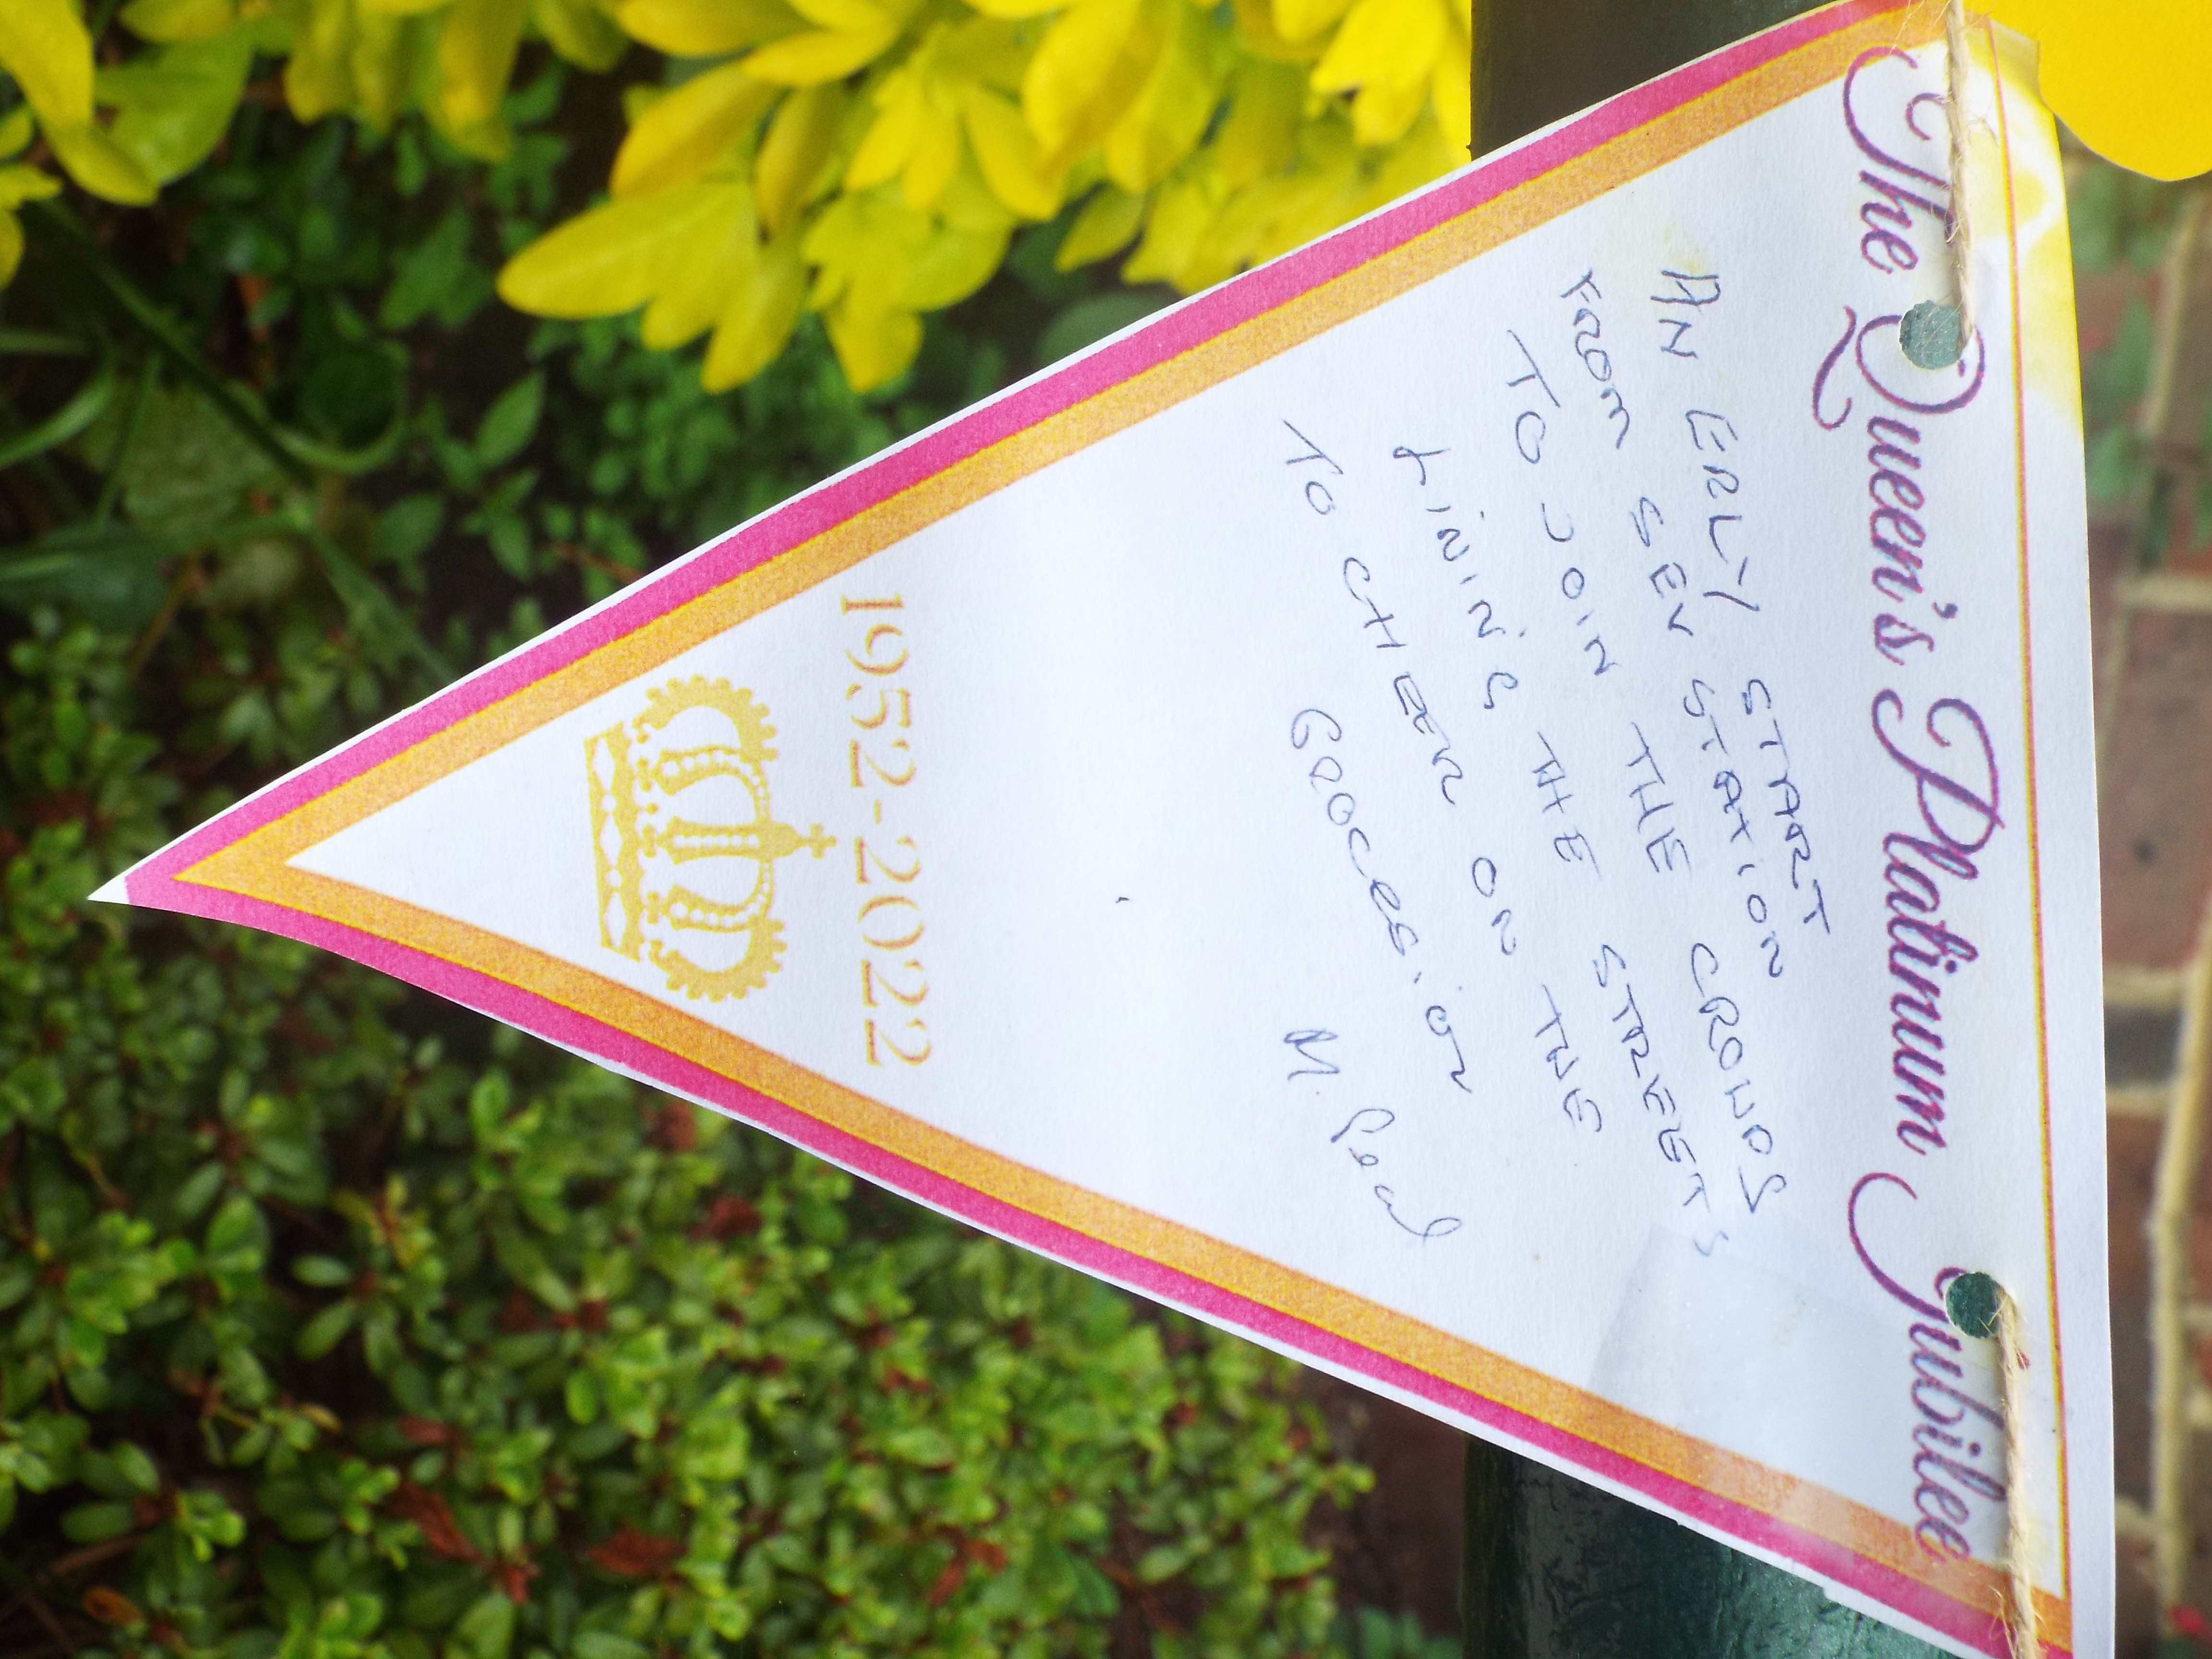 The Queen's Platinum Jubilee
AN ERLY START
FROM SEV STATION
TO JOIN THE CROWDS
LINING THE STREETS
TO CHEER ON THE
PROCESSION
M. Peal
1952-2022